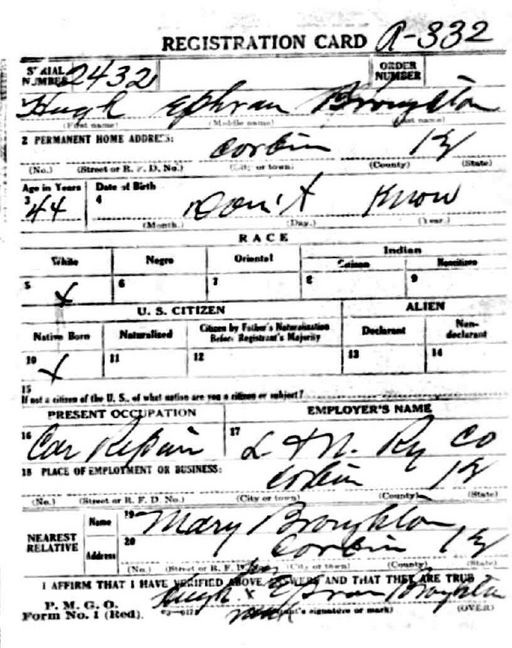 REGISTRATION CARD A-332
SERIAL NUMBER 2432 ORDER NUMBER
Hugh Ephram Broughton
(First name) (Middle name) (Last name)
2 PERMANENT HOME ADDRESS: Corbin Ky
(No.) (Street or R. F. D. No.) (City or town) (County) (State)
Age in Years Date of Birth
3 44 4 Don't Know
(Month.) (Day.) (Year.)
RACE
White Negro Oriental Indian
Citizen Noncitizen
5 X 6 7 8 9
U. S. CITIZEN ALIEN
Native Born Naturalized Citizen by Father's Naturalization Before Registrant's Majority Declarant Non-declarant
10 X 11 12 13 14
15
If not a citizen of the U. S., of what nation are you a citizen or subject?
PRESENT OCCUPATION EMPLOYER'S NAME
16 Car Repair 17 L & N. Ry Co
18 PLACE OF EMPLOYMENT OR BUSINESS: Corbin Ky
(No.) (Street or R. F. D. No.) (City or town) (County) (State)
NEAREST RELATIVE Name 19 Mary Broughton
Address 20 Corbin Ky
(No.) (Street or R. F. D. No.) (City or town) (County) (State)
I AFFIRM THAT I HAVE VERIFIED ABOVE ANSWERS AND THAT THEY ARE TRUE
P. M. G. O.
Form No. 1 (Red). Hugh X Ephram Broughton
his mark
(Registrant's signature or mark) (OVER)